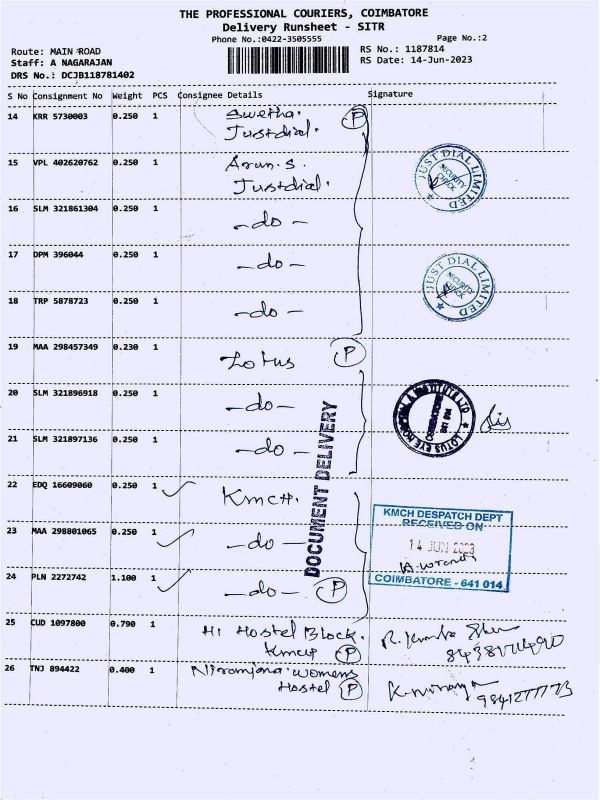 THE PROFESSIONAL COURIERS, COIMBATORE
Delivery Runsheet - SITR
Phone No.:0422-3505555 Page No.:2
Route: MAIN ROAD RS No.: 1187814
Staff: A NAGARAJAN RS Date: 14-Jun-2023
DRS No.: DCJB118781402
S No Consignment No Weight PCS Consignee Details Signature
14 KRR 5730003 0.250 1 Swetha. P
Justdial.
15 VPL 402620762 0.250 1 Arun. S.
Justdial.
JUST DIAL LIMITED
SECURITY CHECK
16 SLM 321861304 0.250 1 -do-
17 DPM 396044 0.250 1 -do-
JUST DIAL LIMITED
SECURITY CHECK
18 TRP 5878723 0.250 1 -do-
19 MAA 298457349 0.230 1 Lotus P
20 SLM 321896918 0.250 1 -do-
LOTUS EYE HOSPITAL & INSTITUTE LTD
COIMBATORE
641 014
21 SLM 321897136 0.250 1 -do-
DOCUMENT DELIVERY
22 EDQ 16609060 0.250 1 KMCH.
KMCH DESPATCH DEPT
RECEIVED ON
14 JUN 2023
COIMBATORE - 641 014
23 MAA 298801065 0.250 1 -do-
24 PLN 2272742 1.100 1 -do- P
25 CUD 1097800 0.790 1 H1 Hostel Block.
P
26 TNJ 894422 0.400 1 Niranjana Womens
Hostel P